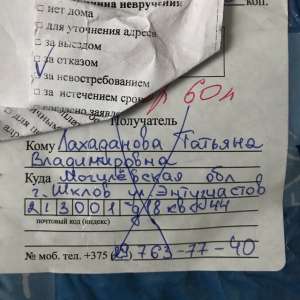 причина невручения
коп.
□ нет дома
□ для уточнения адреса
□ за выездом
□ за отказом
□ за невостребованием
□ за истечением срока
60л
Получатель
Кому Лахаданова Татьяна
Владимировна
Куда Могилёвская обл
г. Шклов ул Энтузиастов
213001 д 18 кв 44
почтовый код (индекс)
№ моб. тел. +375 (29) 763-77-40